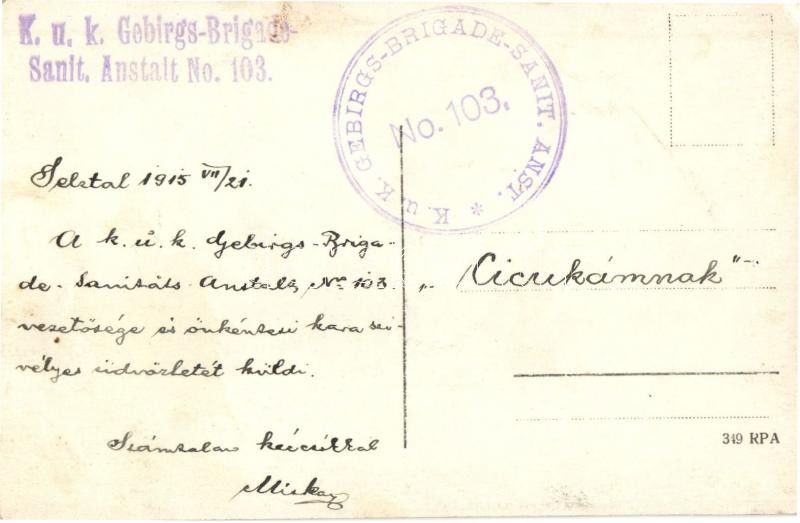 K. u. k. Gebirgs-Brigade-
Sanit. Anstalt No. 103.
K. u. K. GEBIRGS-BRIGADE-SANIT. ANST. *
No. 103.
Selztal 1915 VII/21.
A k. u. k. Gebirgs-Briga-
de-Sanitäts-Anstalt No 103.
vezetősége és önkéntesi kara szi-
vélyes üdvözletét küldi.
Számtalan kézcsókkal
Miskay
„Cicukámnak"
349 RPA